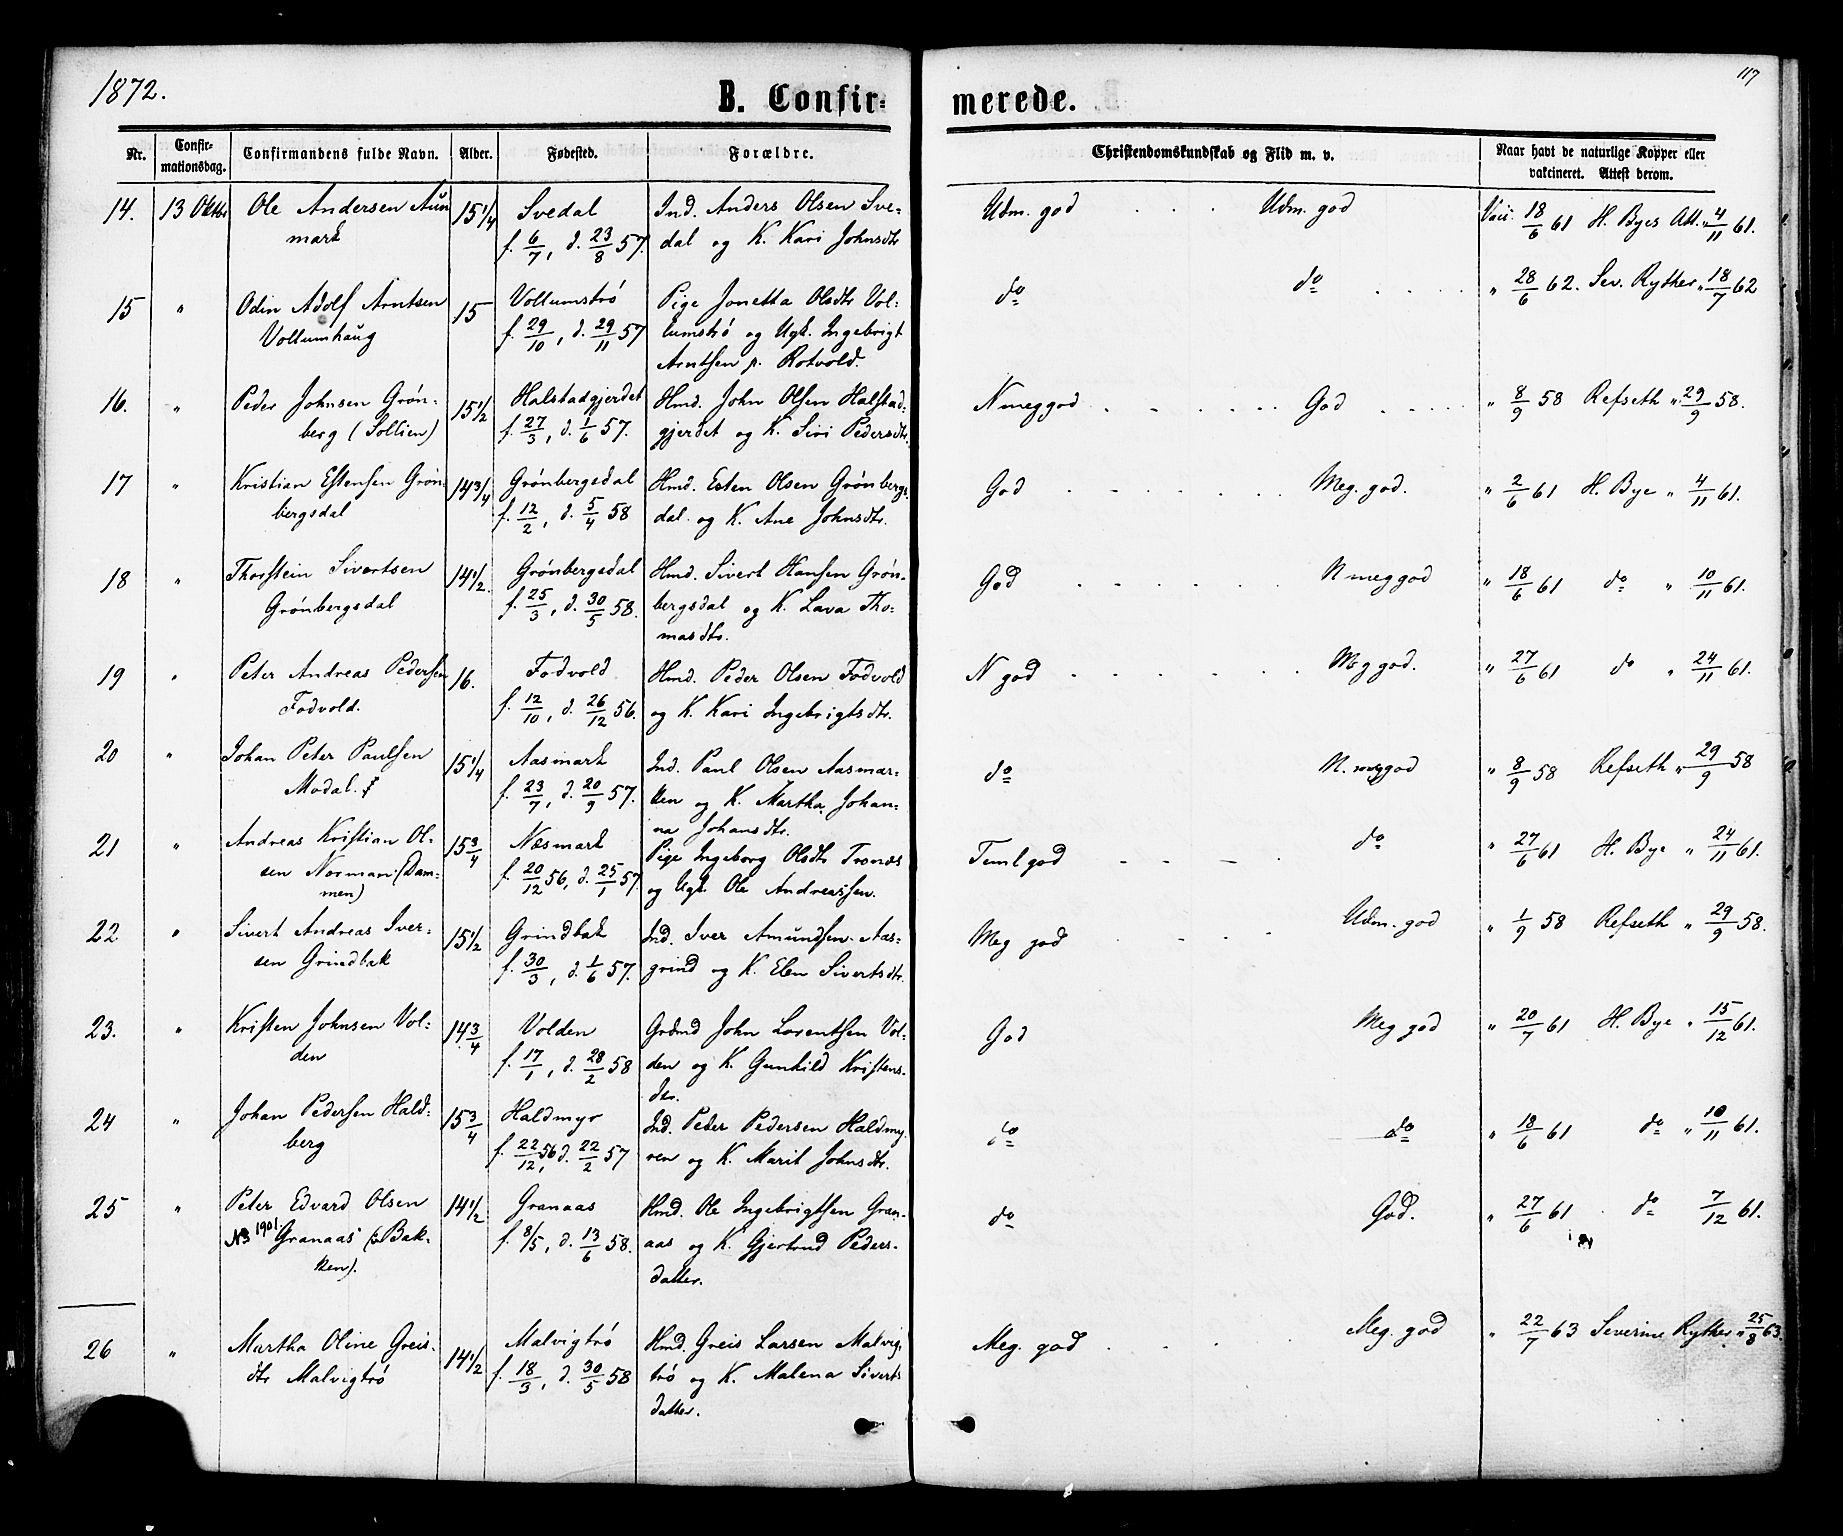 1872.
117
B. Confirmerede.
Nr. Confirmationsdag. Confirmandens fulde Navn. Alder. Fødested. Forældre. Christendomskundskab og Flid m. v. Naar havt de naturlige Kopper eller vakcineret. Attest derom.
14. 13 Oktbr Ole Andersen Aun- 15 1/4 Svedal Ind. Anders Olsen Sve- Udm. god . . . Udm. god Vaci. 18/6 61 H. Byes Att. " 4/11 61.
mark f. 6/7, d. 23/8 57. dal og K. Kari Johnsdtr
15 " Odin Adolf Arntsen 15 Vollumstrø Pige Jonetta Olsdtr Vol- do do . . . . " 28/6 62. Sev. Ryther " 18/7 62
Vollumhaug f. 29/10, d. 29/11 57 lumstrø og Ugk. Ingebrigt
Arntsen p. Rotvold.
16. " Peder Johnsen Grøn- 15 1/2 Halstadgjerdet Hmd. John Olsen Halstad- N meg god . . . . . . God . . . . " 8/9 58 Refseth " 29/9 58.
berg (Sollien) f. 27/3, d. 1/6 57. gjerdet og K. Siri Pedersdtr.
17 " Kristian Estensen Grøn- 14 3/4 Grønbergsdal Hmd. Esten Olsen Grønbergs- God . . . . . . . Meg. god. " 2/6 61 H. Bye " 4/11 61.
bergsdal f. 12/2, d. 5/4 58 dal og K. Ane Johnsdtr.
18 " Thorstein Sivertsen 14 1/2. Grønbergsdal Hmd. Sivert Hansen Grøn- God . . . . . . N meg god " 18/6 61 do " 10/11 61.
Grønbergsdal f. 25/3, d. 30/5 58. bergsdal og K. Lava Tho-
masdtr.
19 " Peter Andreas Pedersen 16. Fodvold Hmd. Peder Olsen Fodvold N god . . . . . . . Meg god. " 27/6 61 do " 24/11 61.
Fodvold. f. 12/10, d. 26/12 56. og K. Kari Ingebrigtsdtr.
20 " Johan Peter Paulsen 15 1/4 Aasmark Ind. Paul Olsen Aasmar- do N. meg god " 8/9 58 Refseth " 29/9 58
Modal. f. 23/7, d. 20/9 57. ken og K. Martha Johan-
na Johansdtr.
21 " Andreas Kristian Ol- 15 3/4 Næsmark Pige Ingeborg Olsdtr Tronæs Teml god - - - - do " 27/6 61 H. Bye " 24/11 61.
sen Norman (Dam- f. 20/12 56, d. 25/1 57. og Ugk. Ole Andreassen.
men)
22 " Sivert Andreas Iver- 15 1/2 Grindbak Ind. Iver Amundsen Aas- Meg god . . . . Udm. god " 1/9 58 Refseth " 29/9 58.
sen Grindbak f. 30/3, d. 1/6 57. grind og K. Elen Sivertsdtr.
23. " Kristen Johnsen Vol- 14 3/4 Volden Grdmd John Lorentsen Vol- God Meg god " 20/7 61 H. Bye " 15/12 61.
den f. 17/1, d. 28/2 58 den og K. Gunhild Kristens-
dtr.
24 " Johan Pedersen Hald- 15 3/4 Haldmyr Ind. Peter Pedersen Haldmy- do do " 18/6 61 do " 10/11 61.
berg f. 22/12 56, d. 22/2 57 ren og K. Marit Johnsdtr.
25 " Peter Edvard Olsen 14 1/2 Granaas Hmd. Ole Ingebrigtsen Gran- do God. " 27/6 61 do 7/12 61.
N3 1901 Granaas (Bak- f. 8/5, d. 13/6 58. aas og K. Gjertrud Peders-
ken). datter.
26 " Martha Oline Greis- 14 1/2 Malvigtrø Hmd. Greis Larsen Malvig- Meg. god . . . Meg. god " 22/7 63 Severine Ryther " 25/8 63.
dtr Malvigtrø f. 18/3, d. 30/5 58 trø og K. Malena Siverts
datter.